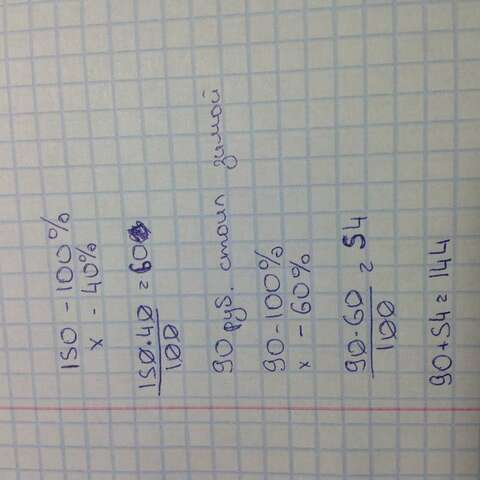 150 - 100%
x - 40%
150·40 = 60
100
90 руб. стоил зимой
90-100%
x - 60%
90·60 = 54
100
90+54=144